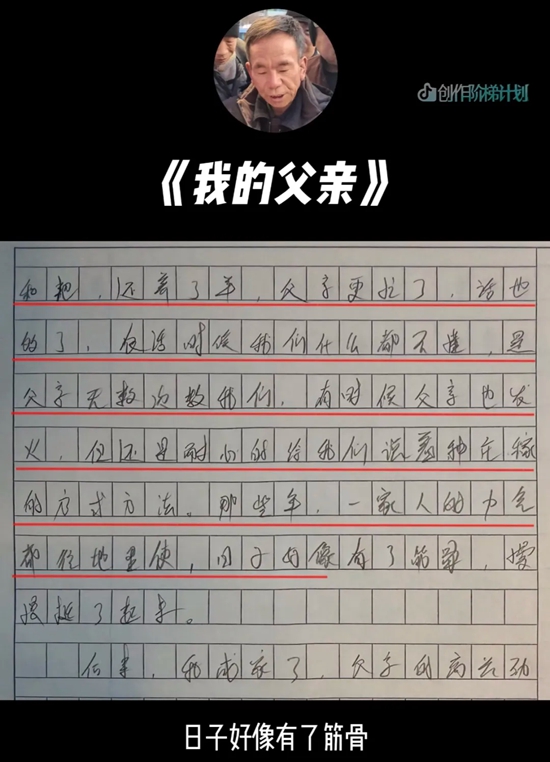 创作阶梯计划
《我的父亲》
和耙，还养了羊，父亲更忙了，话也
的了，很浅时候我们什么都不懂，是
父亲无数次教我们，有时候父亲也发
火，但还是耐心的给我们说着种庄稼
的方式方法。那些年，一家人的力气
都往地里使，日子好像有了筋骨，慢
慢挺了起来。
后来，我成家了，父亲的高兴劲
日子好像有了筋骨